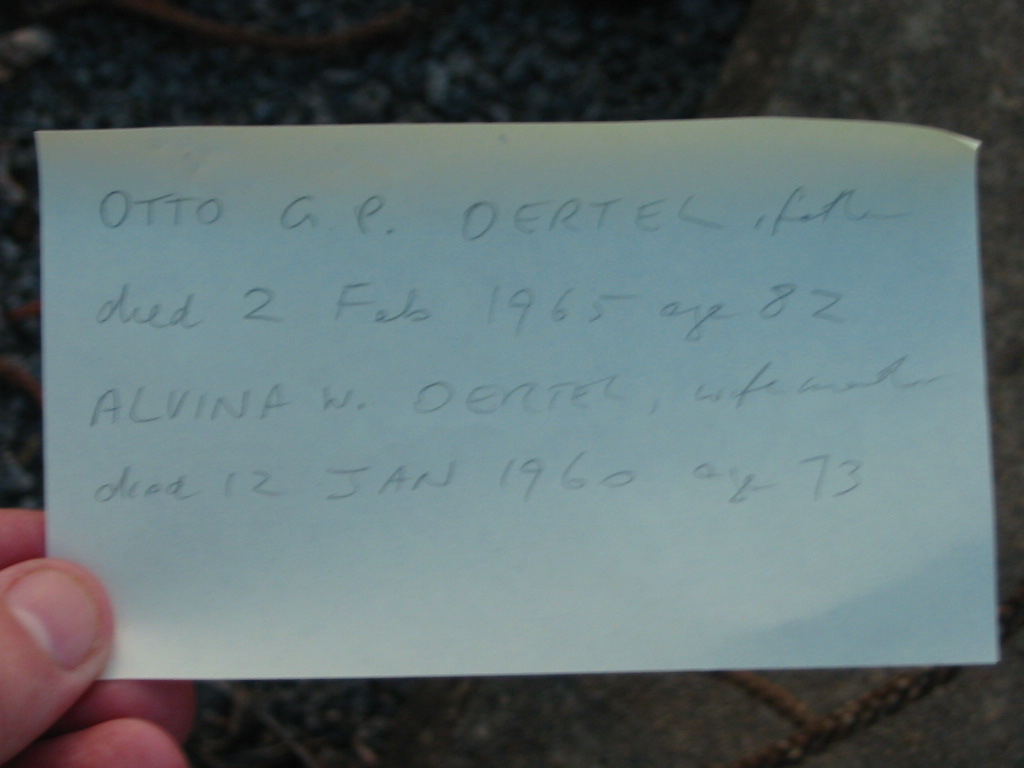 OTTO G. P. OERTEL, father
died 2 Feb 1965 age 82
ALVINA W. OERTEL, wife mother
died 12 JAN 1960 age 73